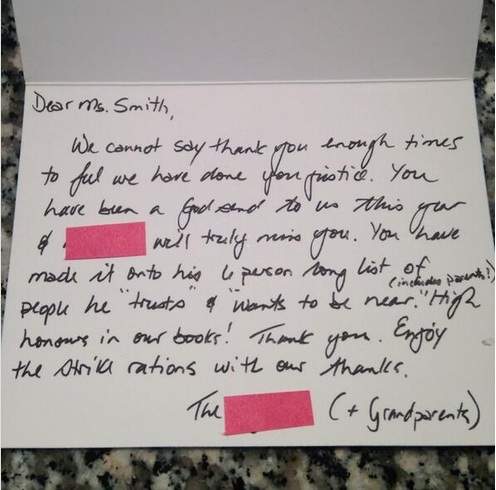 Dear Ms. Smith,
We cannot say thank you enough times
to feel we have done you justice. You
have been a God send to us this year
& will truly miss you. You have
made it onto his 6 person long list of
(includes parents!)
people he "trusts" & "wants to be near." High
honours in our books! Thank you. Enjoy
the strike rations with our thanks.
The (+ Grandparents)